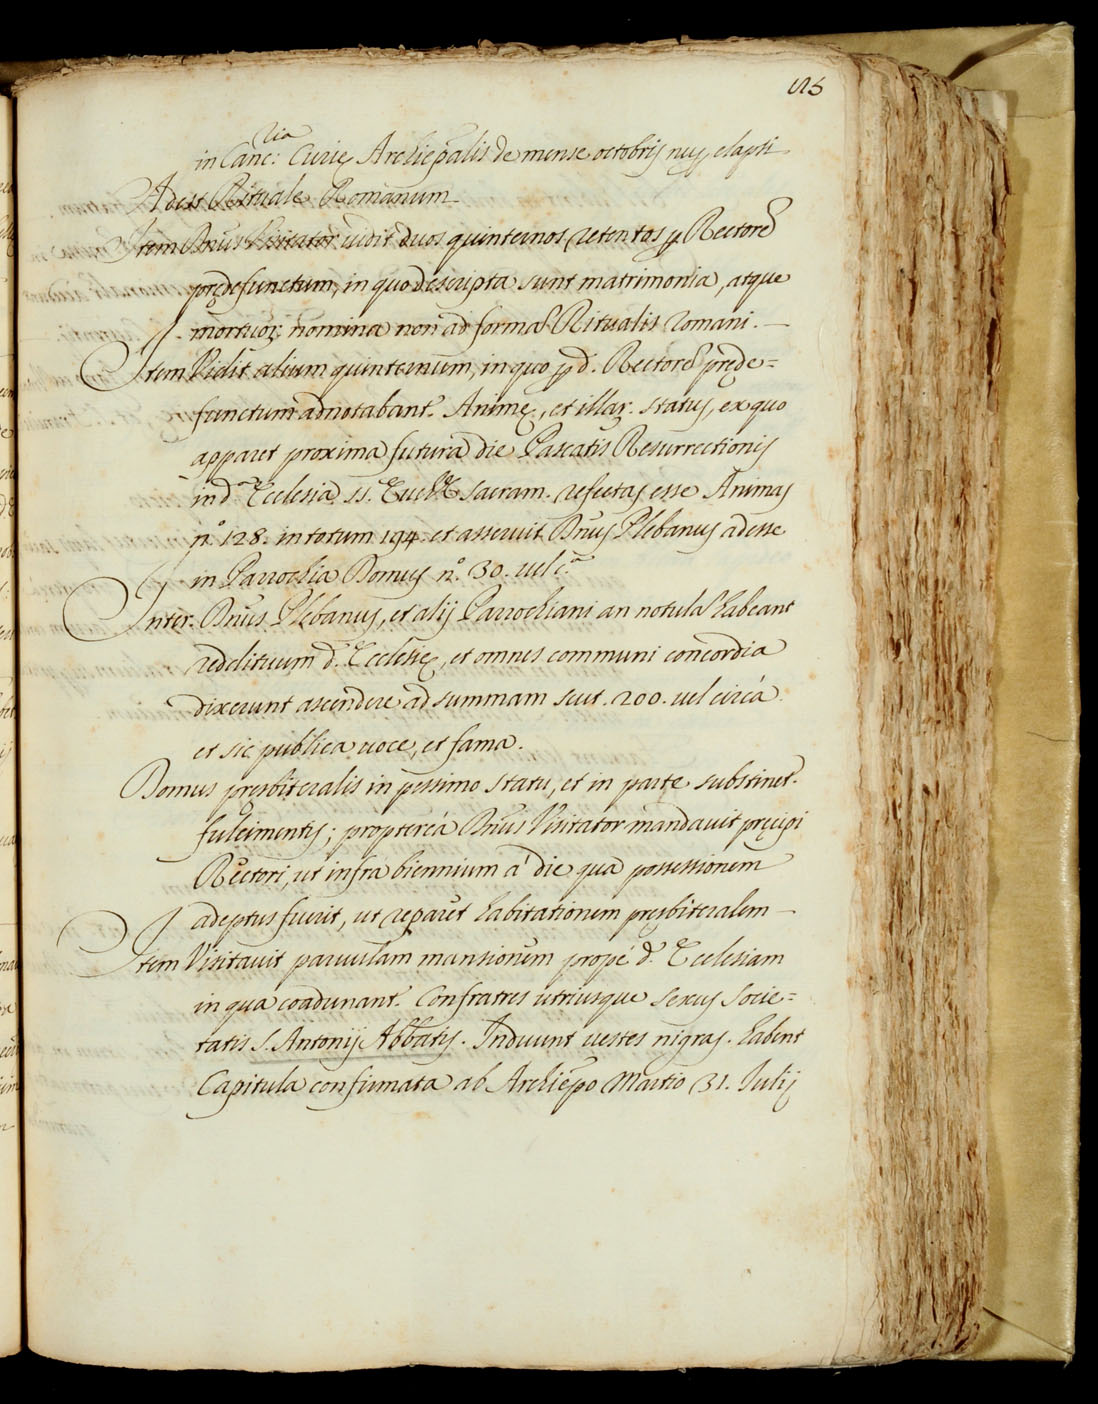 515
in Canc:ria Curię Archiep̄alis de mense octobris nup. elapsi
Adest Rituale Romanum
Item Dnus Visitator vidit duos quinternos retentos p Rectorē
prędefunctum, in quo descripta sunt matrimonia, atque
mortuor. nomina non ad formā Ritualis Romani. —
Item Vidit alium quinternum, in quo p d. Rectorē pręde=
functum adnotabant.r Animę, et illar. status, ex quo
apparet proxima futura die Pascatis Resurrectionis
in d.a Ecclesia SS. Euch. sacram. refectas esse Animas
n.o 128. in totum 194. et asseruit Dnus Plebanus adesse
in Parrochia Domus n.o 30. vel c.a
Inter. Dnus Plebanus, et alij Parrochiani an notulā habeant
reddituum d. Ecclesię, et omnes communi concordia
dixerunt ascendere ad summam scut. 200. vel circà
et sic publica voce, et fama.
Domus pręsbiteralis in pessimo statu, et in parte substinet.r
fulcimentis; proptereà Dnus Visitator mandavit pręcipi
Rectori, ut infra biennium à die qua possessionem
adeptus fuerit, ut reparet habitationem pręsbiteralem —
Item Visitavit parvulam mansionem propè d. Ecclesiam
in qua coadunant.r Confratres utriusque sexus Socie=
tatis S. Antonij Abbatis. Induunt vestes nigras. habent
Capitula confirmata ab Archiep̄o Martio 31. Julij